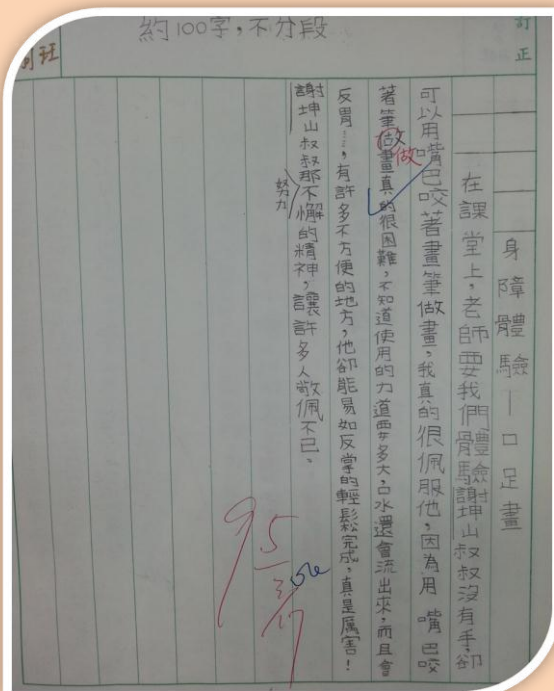 約100字，不分段
訂正
身障體驗－口足畫
在課堂上，老師要我們體驗謝坤山叔叔沒有手，卻
可以用嘴巴咬著畫筆做畫，我真的很佩服他，因為用嘴巴咬
著筆做畫真的很困難，不知道使用的力道要多大，口水還會流出來，而且會
做
反胃……，有許多不方便的地方，他卻能易如反掌的輕鬆完成，真是厲害！
謝坤山叔叔那不懈的精神，讓許多人敬佩不已。
努力
95